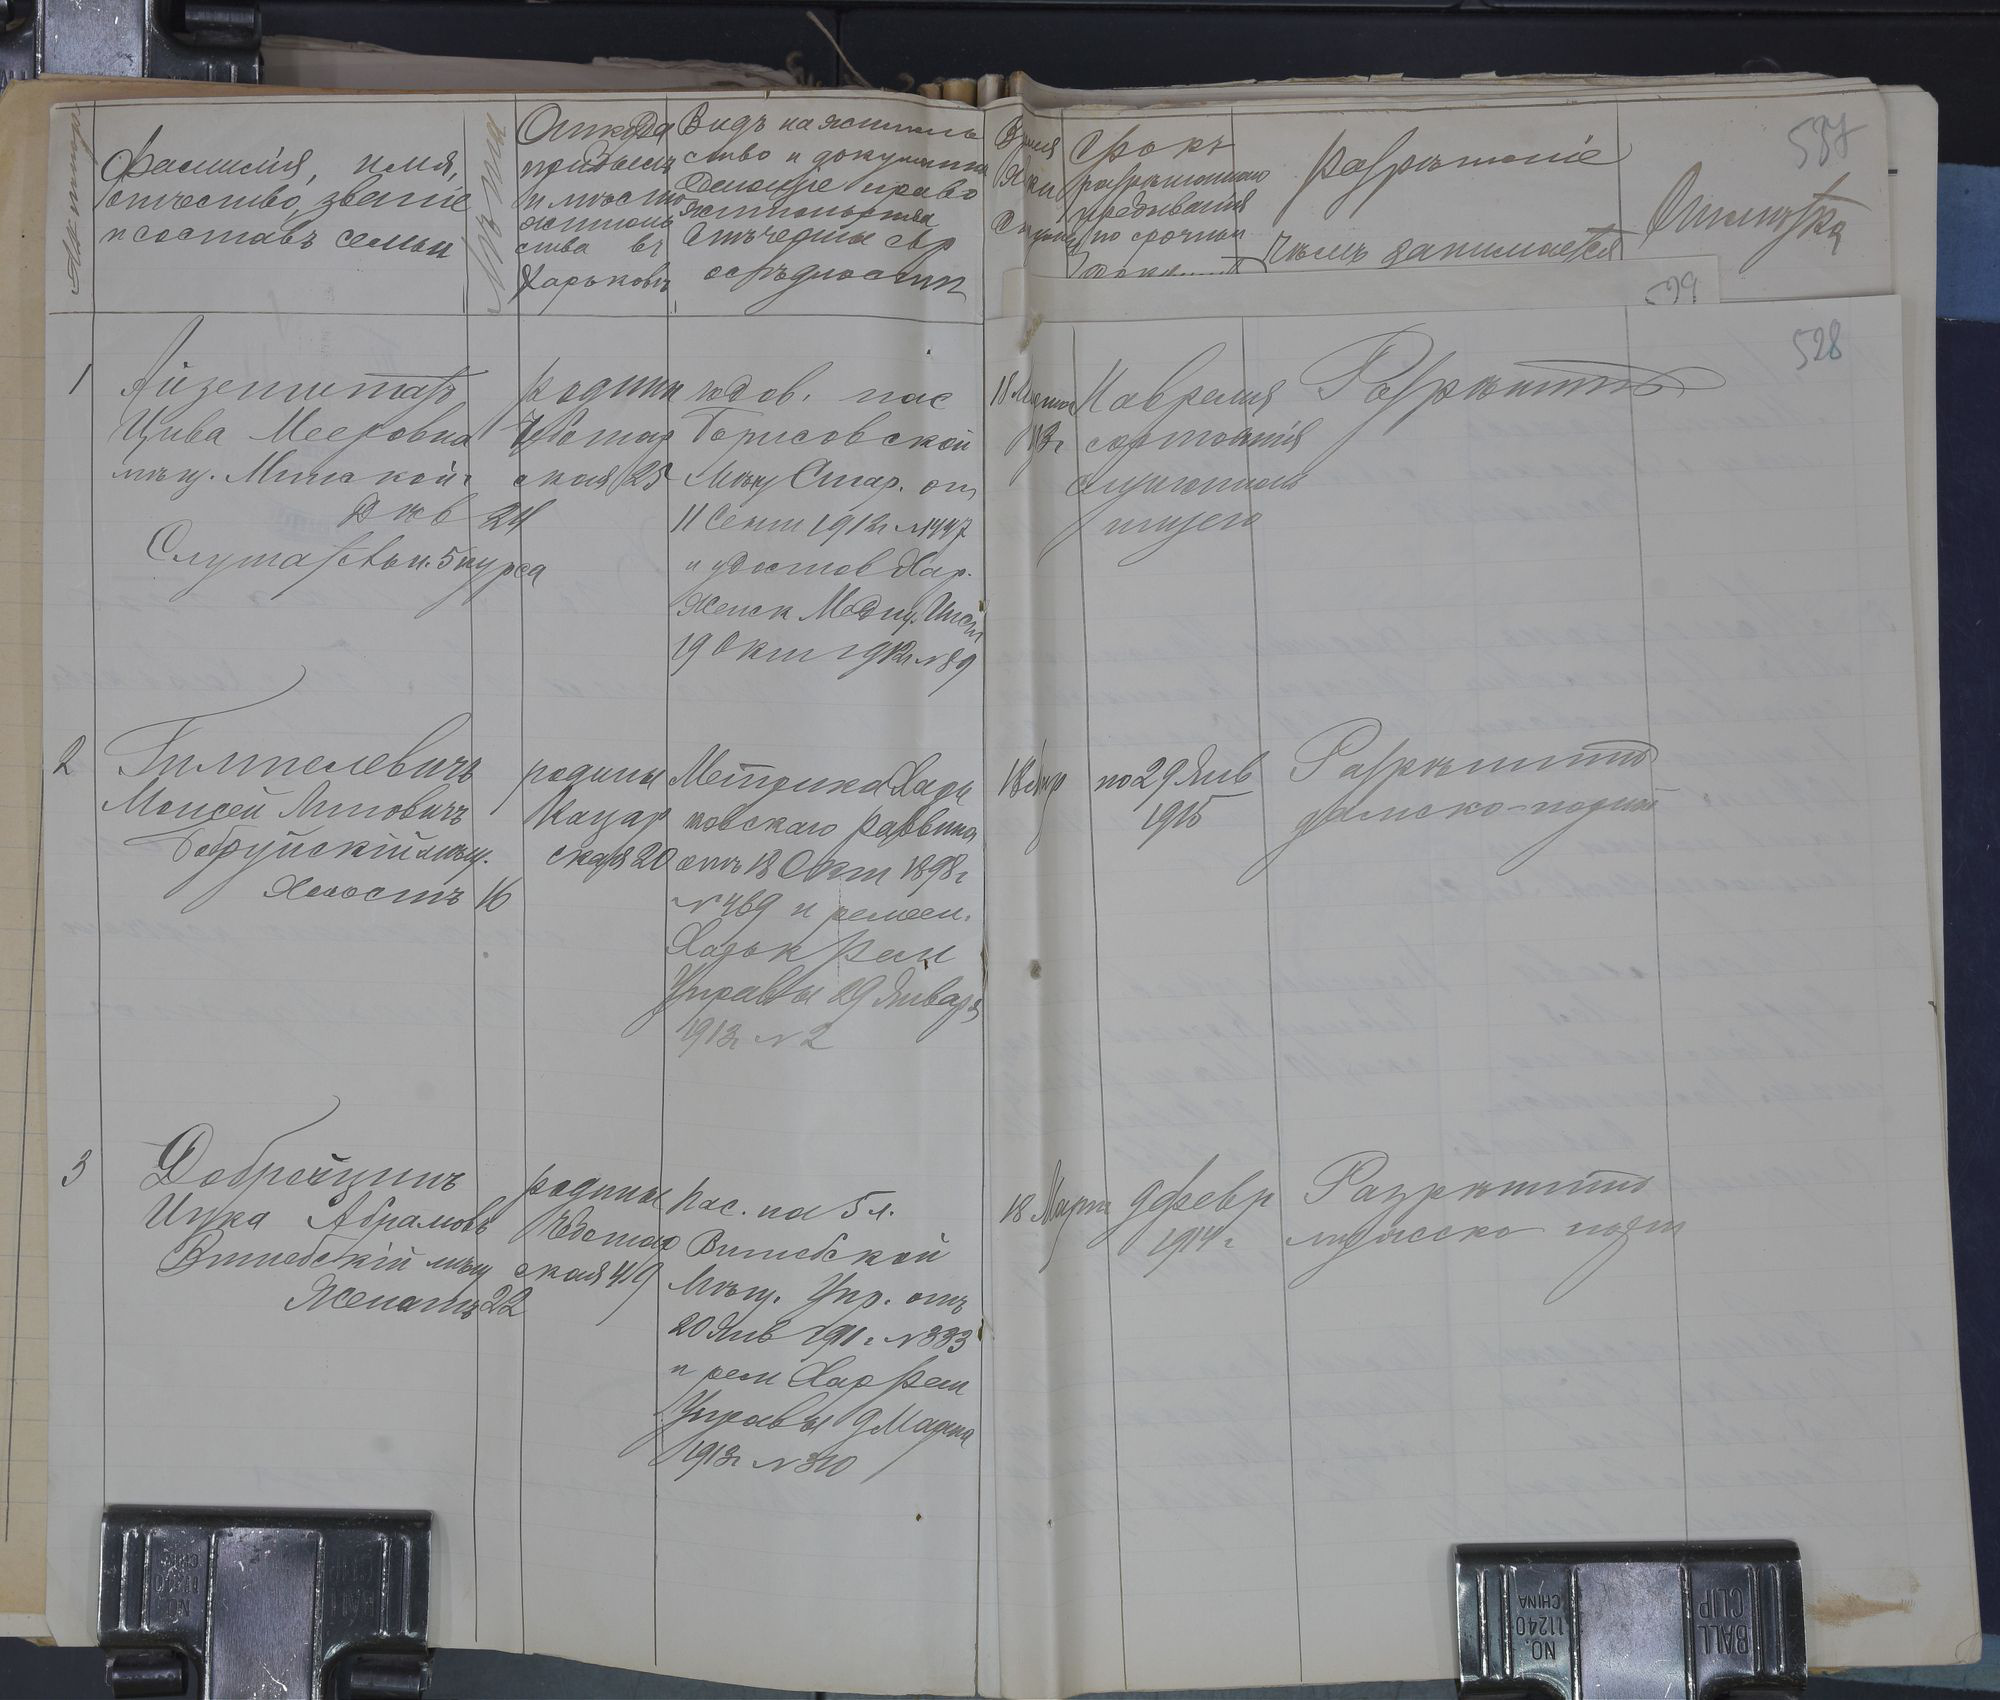 Фамилія, имя,
отчество, званіе
и составъ семьи
Лѣта
Откуда
прибылъ
и мѣсто
жительства въ
Харьковѣ
Видъ на житель
ство и документы
дающіе право
жительства
внѣ черты евр
осѣдлости
Время
Срокъ
разрѣшеннаго
пребыванія
по срочнымъ
Разрѣшеніе
Чѣмъ занимается
Отмѣтка
537
528
1
Айзенштатъ
Цива Мееровна
мѣщ. Минской г
дѣв 24
Слушат. 5 курса
родины
ская 25
год. пас
Борисовской
Мѣщ Стар. от
11 Сент 1912 г № 447
и удостов Хар.
Женск Медиц. Инст
19 Окт 1912 г № 89
18 Марта
1913 г
На время
состоянія
слушатель
ницею
Разрѣшить
2
Гимпелевичъ
Моисей
Бобруйскій мѣщ.
Холостъ 16
родины
Кацар
ская 20
Метрика Харь
ковскаго раввина
отъ 18 Окт 1898 г
№ 469 и ремесл.
Харьк Рем
Управы 29 Января
1913 г № 2
18 Мар
по 29 Янв
1915
Разрѣшить
дамско-портной
3
Добрейцинъ
Ицка Абрамовъ
Витебскій мѣщ
Женатъ 22
родины
ская 49
пас. на 5 л.
Витебской
Мѣщ. Упр. отъ
20 Янв 1911 г № 333
и рем Хар Рем
Управы 9 Марта
1913 г № 310
18 Марта
9 февр
1914 г
Разрѣшить
мужско порт
BALL
CLIP
NO.
11240
CHINA